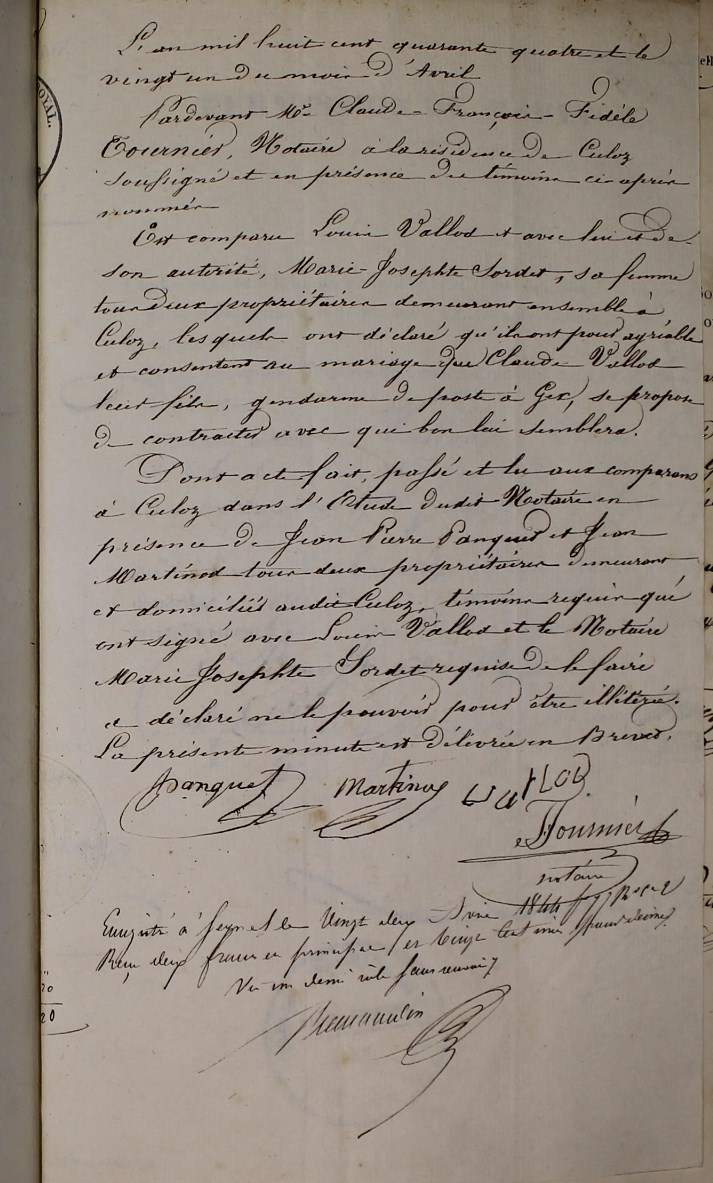 L'an mil huit cent quarante quatre et le
vingt un du mois d'Avril
Pardevant Me Claude-François-Fidèle
Tournier, Notaire à la résidence de Culoz
soussigné et en présence des témoins ci-après
nommés
Est comparu Louis Vallod et avec lui et de
son autorité, Marie-Josephte Sordet, sa femme
tous deux propriétaires demeurant ensemble à
Culoz, lesquels ont déclaré qu'ils ont pour agréable
et consentent au mariage que Claude Vallod
leur fils, gendarme de poste à Gex, se propose
de contracter avec qui bon lui semblera.
Dont acte fait, passé et lu aux comparans
à Culoz dans l'Etude dudit Notaire en
présence de Jean Pierre Panquet et Jean
Martinod tous deux propriétaires demeurant
et domiciliés audit Culoz, témoins requis qui
ont signé avec Louis Vallod et le Notaire
Marie Josephte Sordet requise de le faire
a déclaré ne le pouvoir pour être illitérée.
La présente minute est délivrée en Brevet.
Panquet Martinod Vallod
Tournier
notaire
Enregistré à Seyssel le Vingt deux Avril 1844
Reçu deux francs en principal et vingt centimes pour décime
Vu un demi rôle sans renvoi
ROYAL.
20